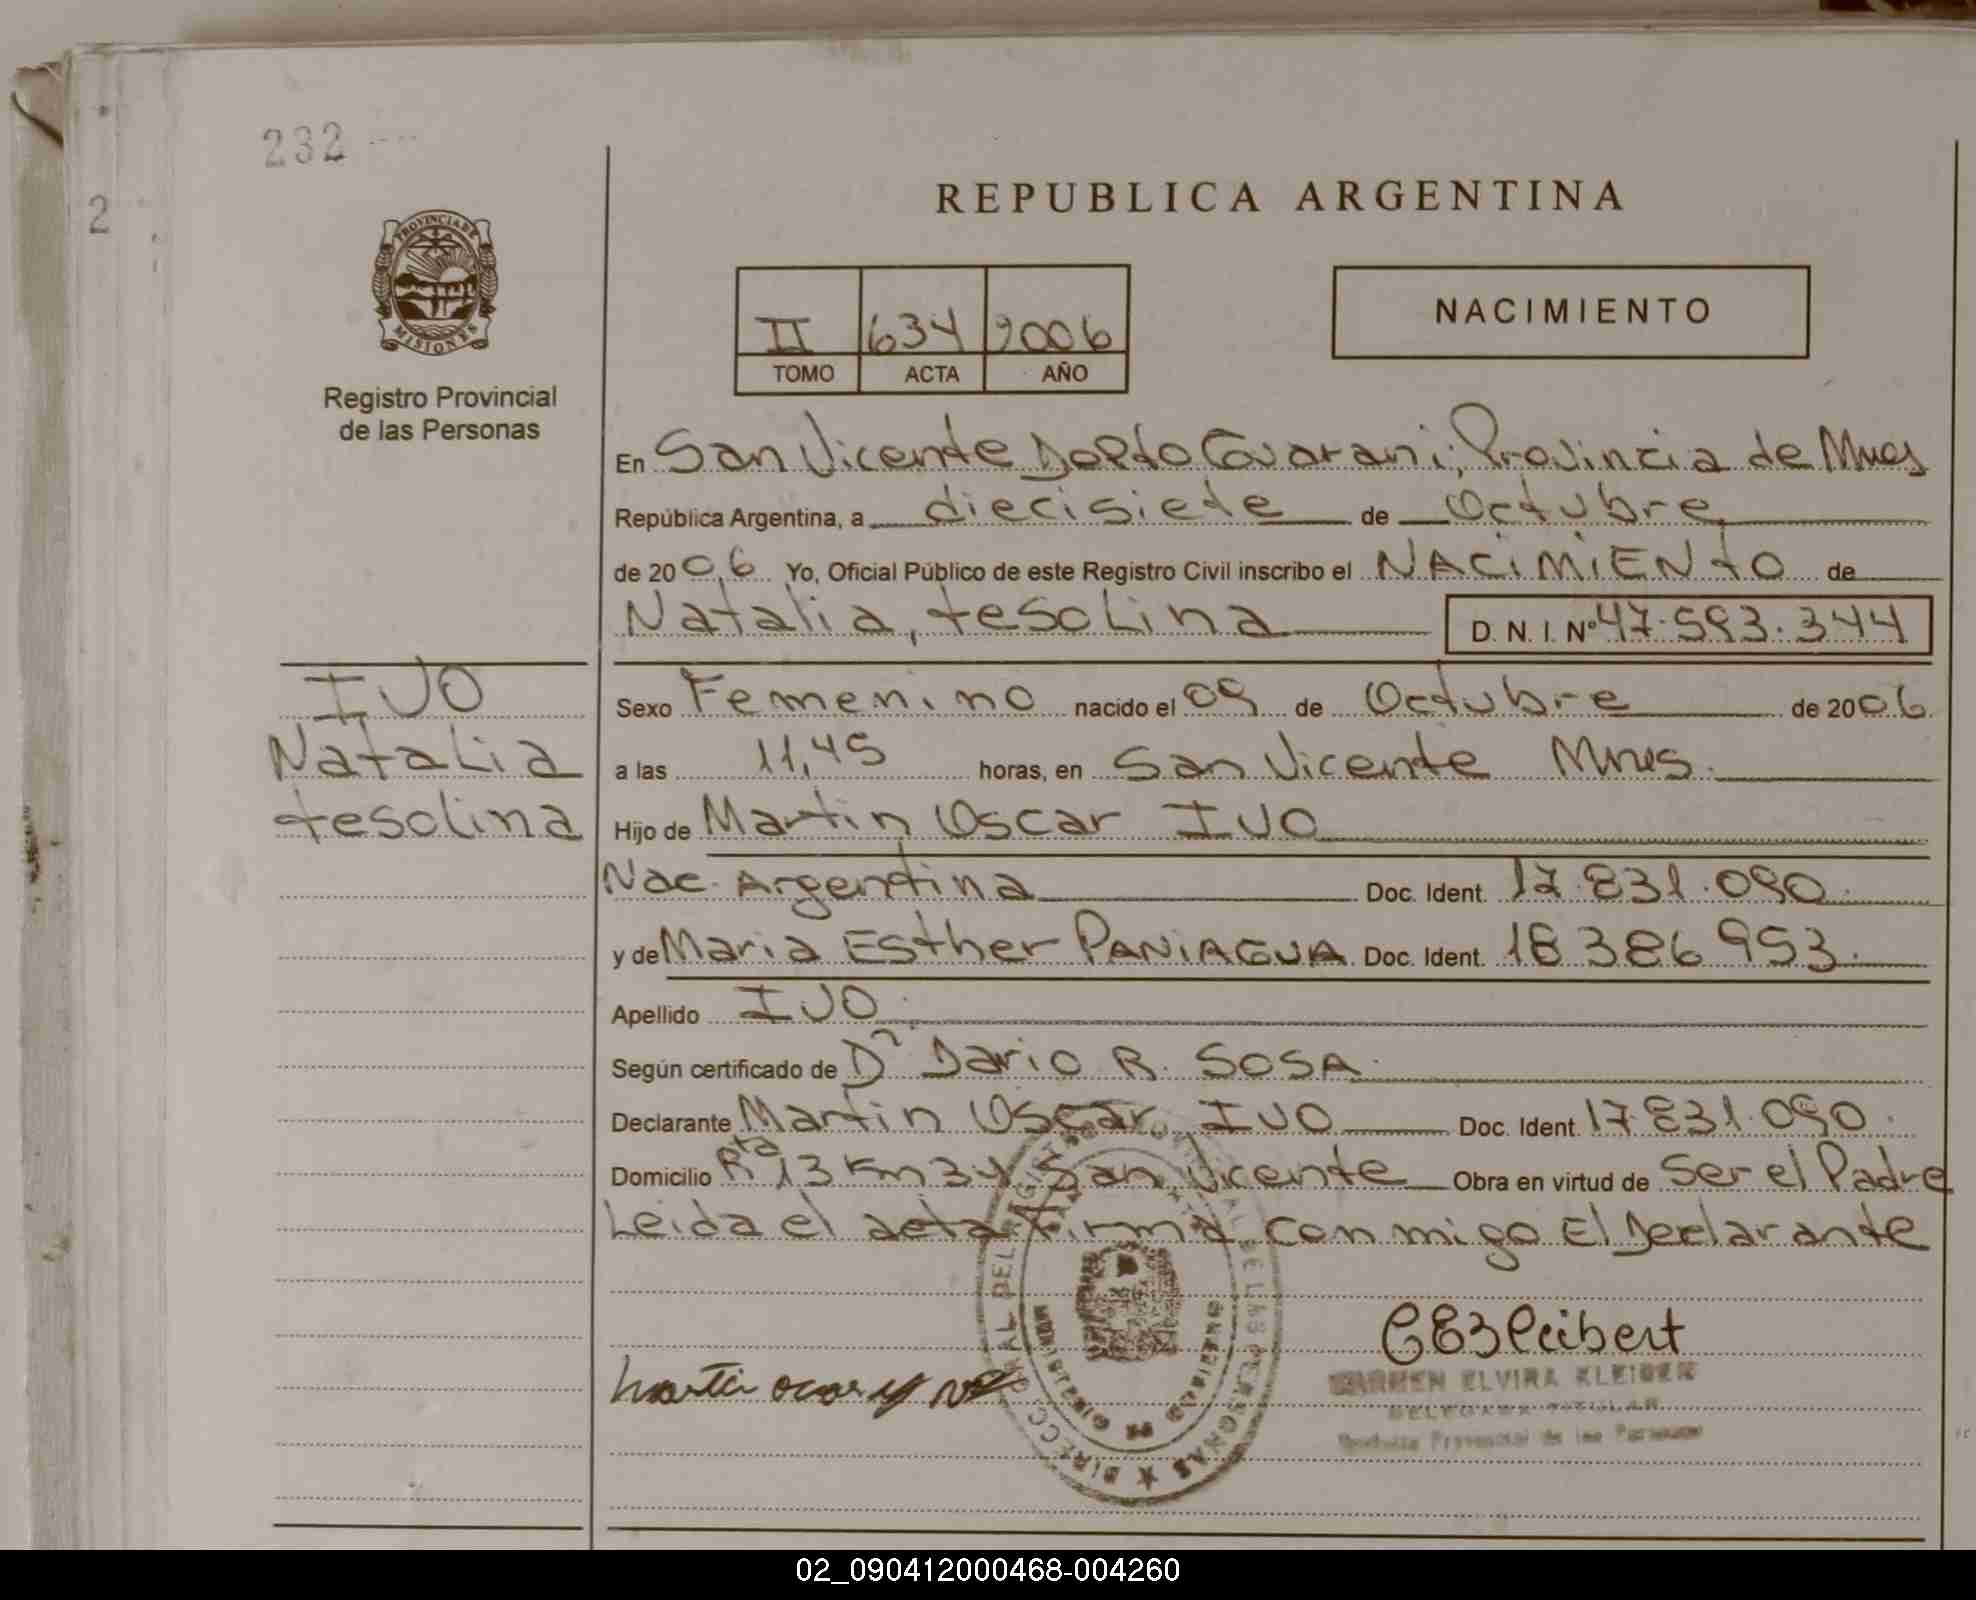 232
2
PROVINCIA DE
MISIONES
Registro Provincial
de las Personas
REPUBLICA ARGENTINA
II 634 2006
TOMO ACTA AÑO
NACIMIENTO
En San Vicente Dpto Guarani; Provincia de Mnes
República Argentina, a diecisiete de Octubre
de 2006 Yo, Oficial Público de este Registro Civil inscribo el NACiMiENto de
Natalia, tesolina D. N. I. Nº 47.593.344
IVO
Natalia
tesolina
Sexo Femenino nacido el 09 de Octubre de 2006
a las 11,45 horas, en San Vicente Mnes.
Hijo de Martin Oscar IVO
Nac. Argentina Doc. Ident. 17.831.090
y de Maria Esther PANiAGUA Doc. Ident. 18 386 953.
Apellido IVO.
Según certificado de Dr Dario R. SOSA.
Declarante Martin Oscar IVO Doc. Ident. 17.831.090.
Domicilio Rta 13 Km 34 San Vicente Obra en virtud de Ser el Padre
Leida el acta Firma con migo El Declarante
CARMEN ELVIRA KLEIBER
DELEGADA TITULAR
Provincial de las Personas
DIRECC RAL DEL REGISTRO AL DE LAS PERSONAS ★
02_090412000468-004260